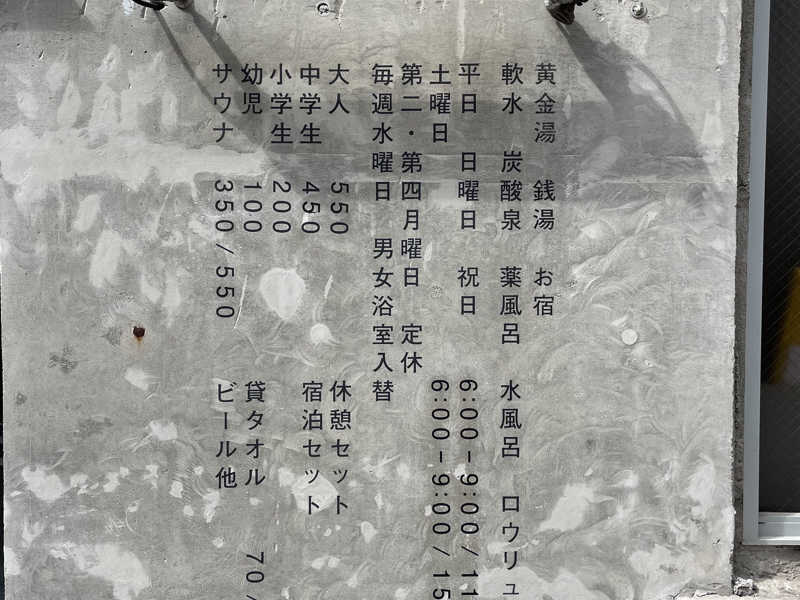 黄金湯 銭湯 お宿
軟水 炭酸泉 薬風呂 水風呂 ロウリュ
平日 日曜日 祝日 6:00-9:00/11
土曜日 6:00-9:00/15
第二・第四月曜日 定休
毎週水曜日 男女浴室入替
大人 550 休憩セット
中学生 450 宿泊セット
小学生 200
幼児 100 貸タオル 70/
サウナ 350/550 ビール他